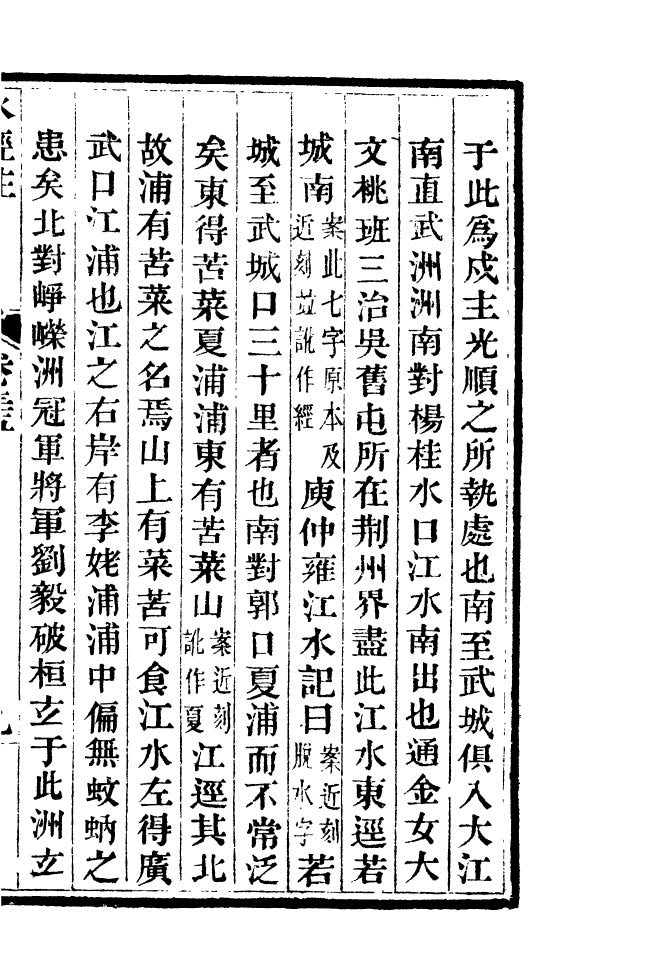 于此爲戍主光順之所執處也南至武城俱入大江
南直武洲洲南對楊桂水口江水南出也通金女大
文桃班三治吳舊屯所在荆州界盡此江水東逕若
城南案此七字原本及近刻竝訛作經庾仲雍江水記曰案近刻脫水字若
城至武城口三十里者也南對郭口夏浦而不常泛
矣東得苦菜夏浦浦東有苦菜山案近刻訛作夏江逕其北
故浦有苦菜之名焉山上有菜苦可食江水左得廣
武口江浦也江之右岸有李姥浦浦中偏無蚊蚋之
患矣北對崢嶸洲冠軍將軍劉毅破桓玄于此洲玄
水經注